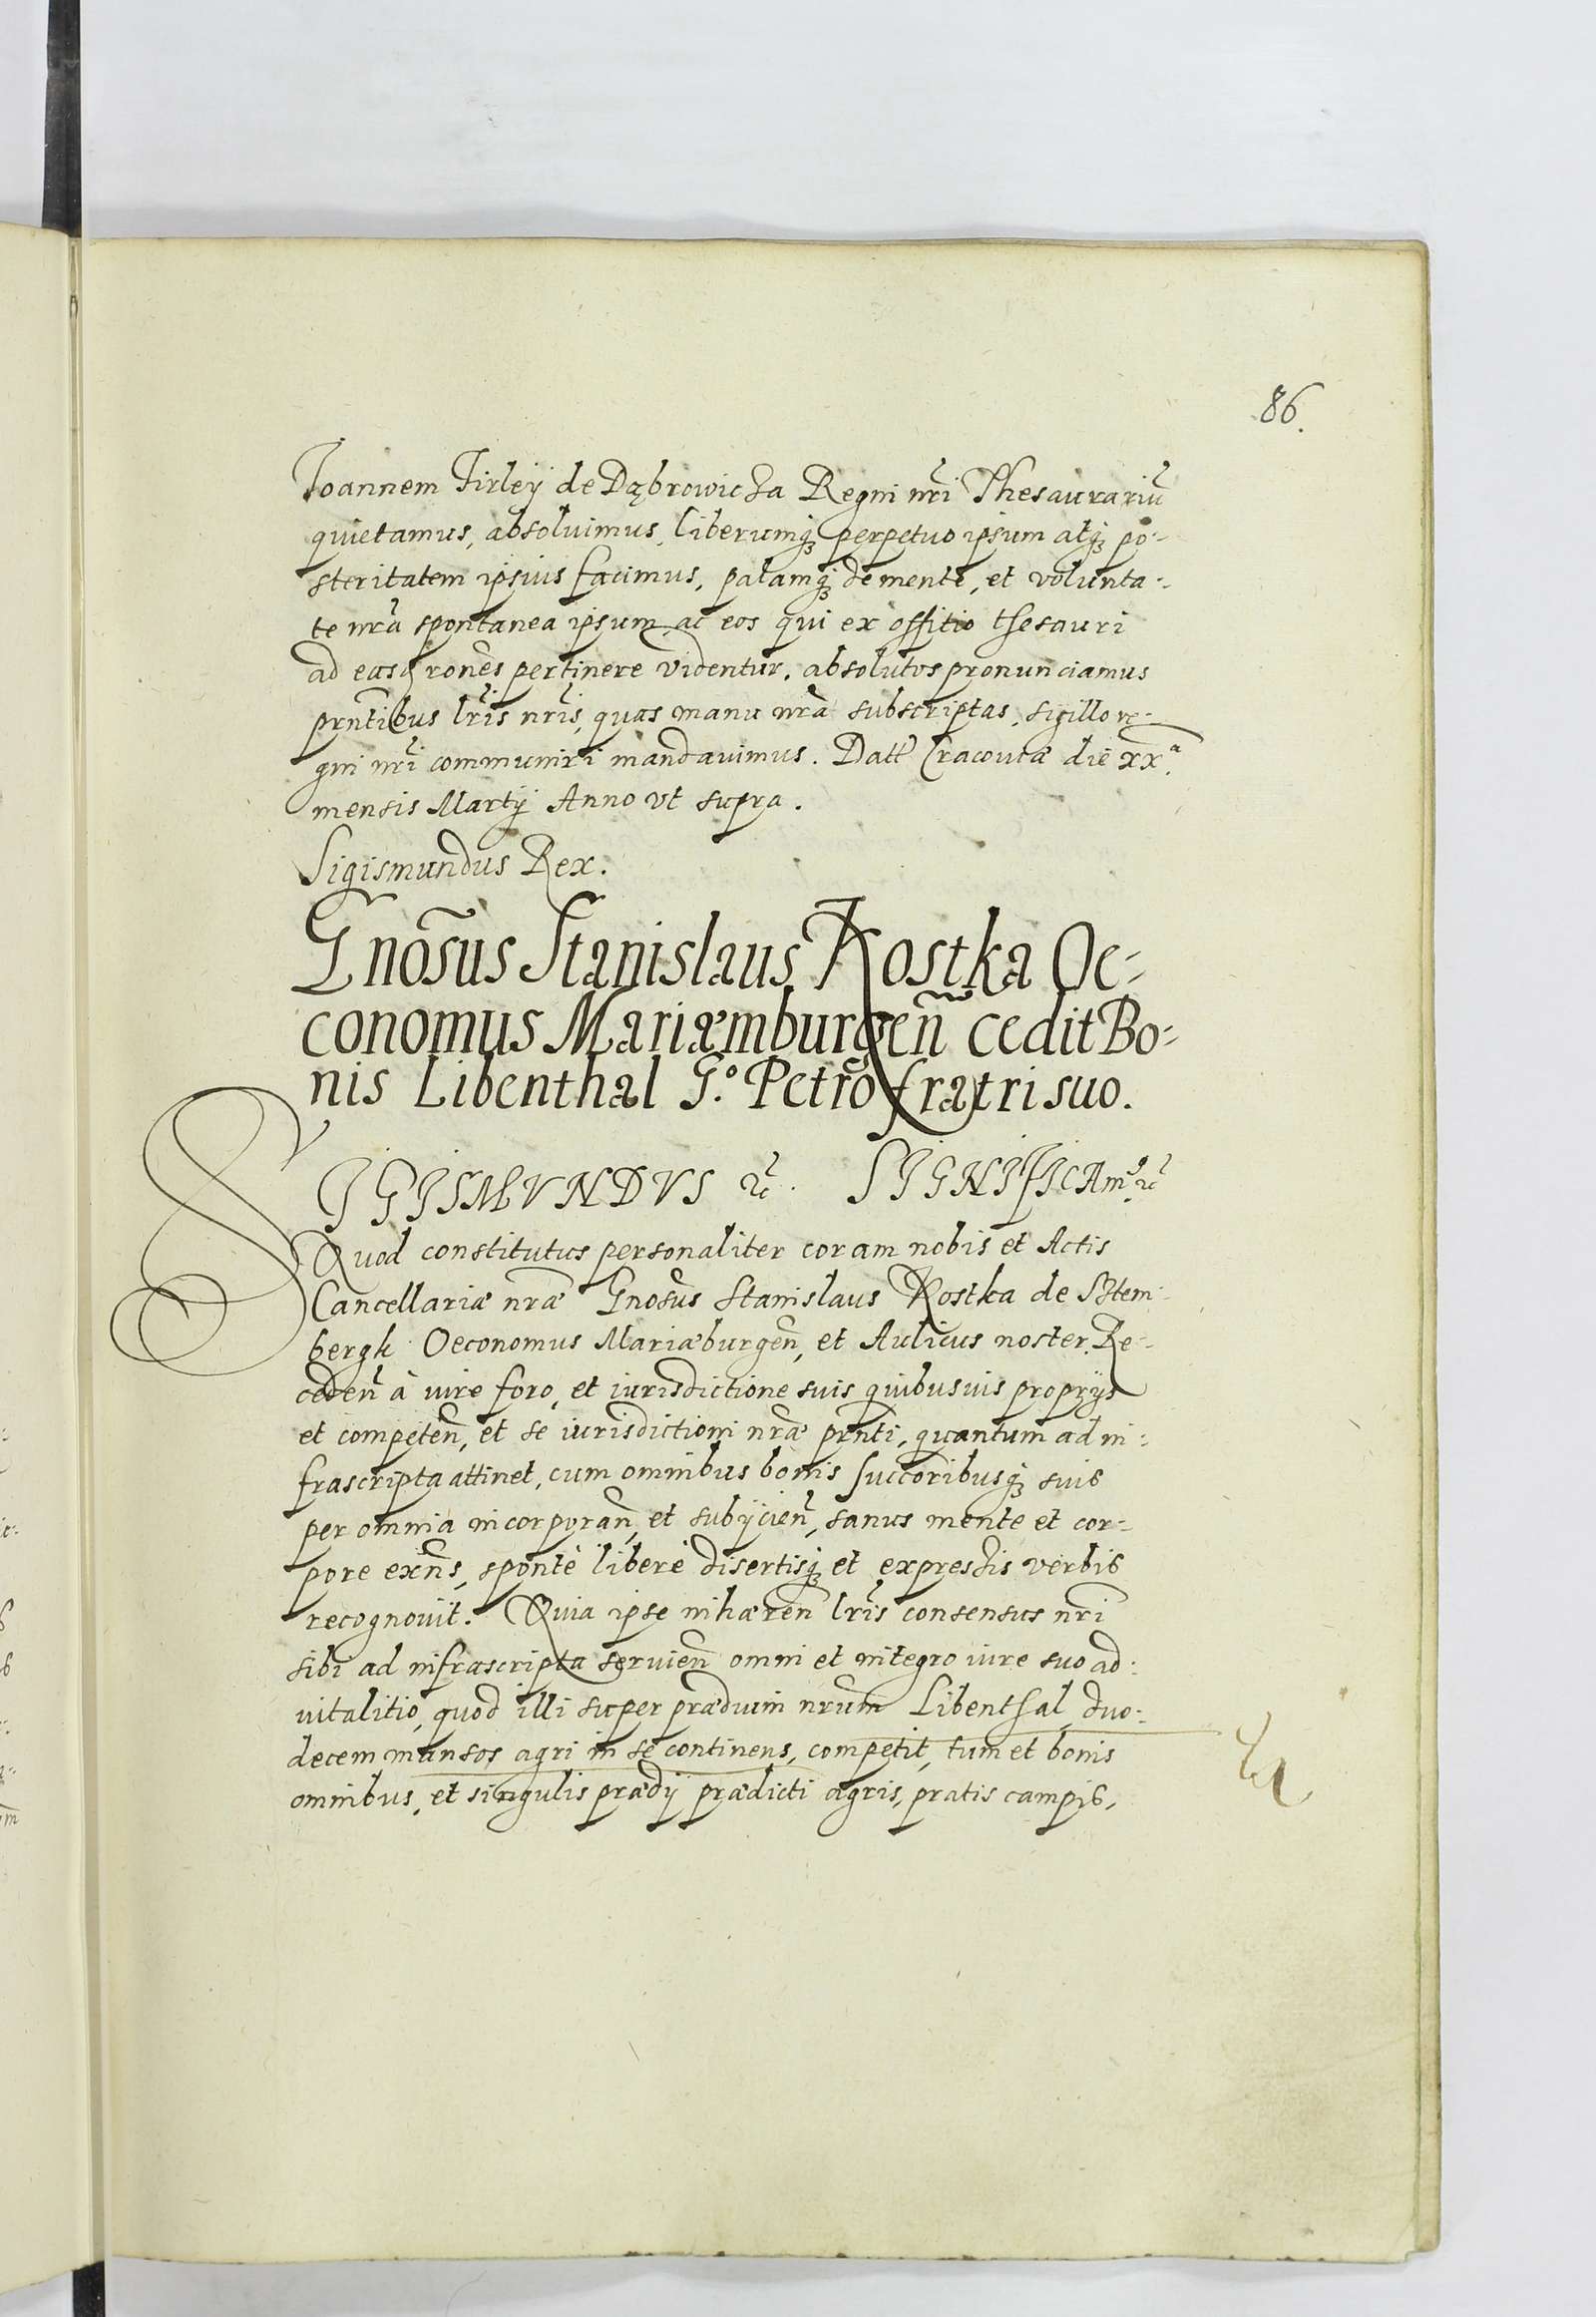 86.
Joannem Firleÿ de Dąbrowicza Regni nr̃i Thesaurariũ
quietamus, absoluimus, liberumq́ꝫ perpetuo ipsum atq́ꝫ po-
steritatem ipsius facimus, palamq́ꝫ de mente, et volunta-
te nr̃a spontanea ipsum ac eos qui ex offitio thesauri
ad easq̃ rones pertinere videntur. absolutos pronunciamus
prñtibus lr̃is nr̃is, quas manu nr̃a subscriptas, sigillo re-
gni nr̃i communiri mandauimus. Datt Cracouiæ die xxª.
mensis Martij Anno vt supra.
Sigismundus Rex.
Gnõsus Stanislaus Kostka Oe-
conomus Mariæmburgeñ cedit Bo-
nis Libenthal G.º Petro fratri suo.
SIGISMVNDVS ꝛc̃. SIGNIFICAmꝰ ꝛc̃
Quod constitutus personaliter coram nobis et Actis
Cancellariæ nr̃æ Gnosũs Stanislaus Kostka de Sztem-
bergk Oeconomus Mariæburgeñ, et Aulicus noster. Re-
cedeñ à iure foro, et iurisdictione suis quibusuis proprijs
et competeñ, et se iurisdictioni nr̃æ prñti, quantum ad in-
frascripta attinet, cum omnibus bonis succoribusq́ꝫ suis
per omnia incorporañ, et subijcieñ, sanus mente et cor-
pore exñs, spontè liberè disertisq́ꝫ et expressis verbis
recognouit. Quia ipse inhæreñ lr̃is consensus nr̃i
sibi ad infrascripta serùieñ omni et integro iure suo ad-
uitalitio, quod illi super prædium nr̃um Libenthal, duo-
decem mansos agri in se continens, competit, tum et bonis
omnibus, et singulis prædij prædicti agris, pratis campis,